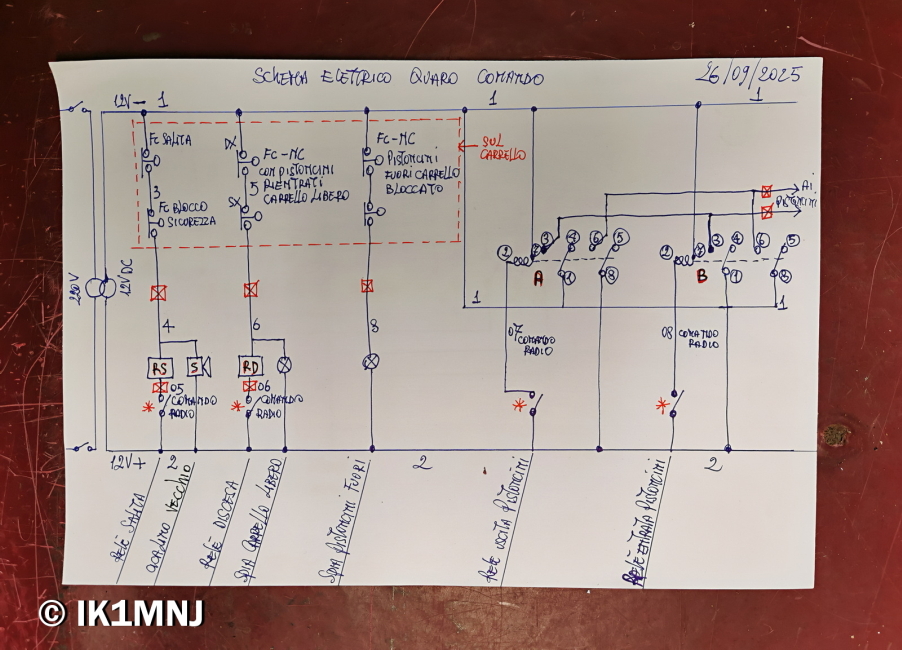 SCHEMA ELETTRICO QUARO COMANDO
26/09/2025
12V- 1
1
1
FC SALITA
DX
FC-NC
CON PISTONCINI
5 RIENTRATI
CARRELLO LIBERO
SX
FC-NC
PISTONCINI
FUORI CARRELLO
BLOCCATO
SUL
CARRELLO
3
FC BLOCCO
SICUREZZA
Ai
PISTONCINI
220 V
12V DC
2
3
4
6
5
A
1
8
2
3
4
6
5
B
1
8
1
1
4
6
8
07
COMANDO
RADIO
08 COMANDO
RADIO
RS
S
RD
05
COMANDO
RADIO
06
COMANDO
RADIO
12V+ 2
2
2
RELÈ SALITA
CICALINO VECCHIO
RELÈ DISCESA
SPIA CARRELLO LIBERO
SPIA PISTONCINI FUORI
RELÈ USCITA PISTONCINI
RELÈ ENTRATA PISTONCINI
© IK1MNJ